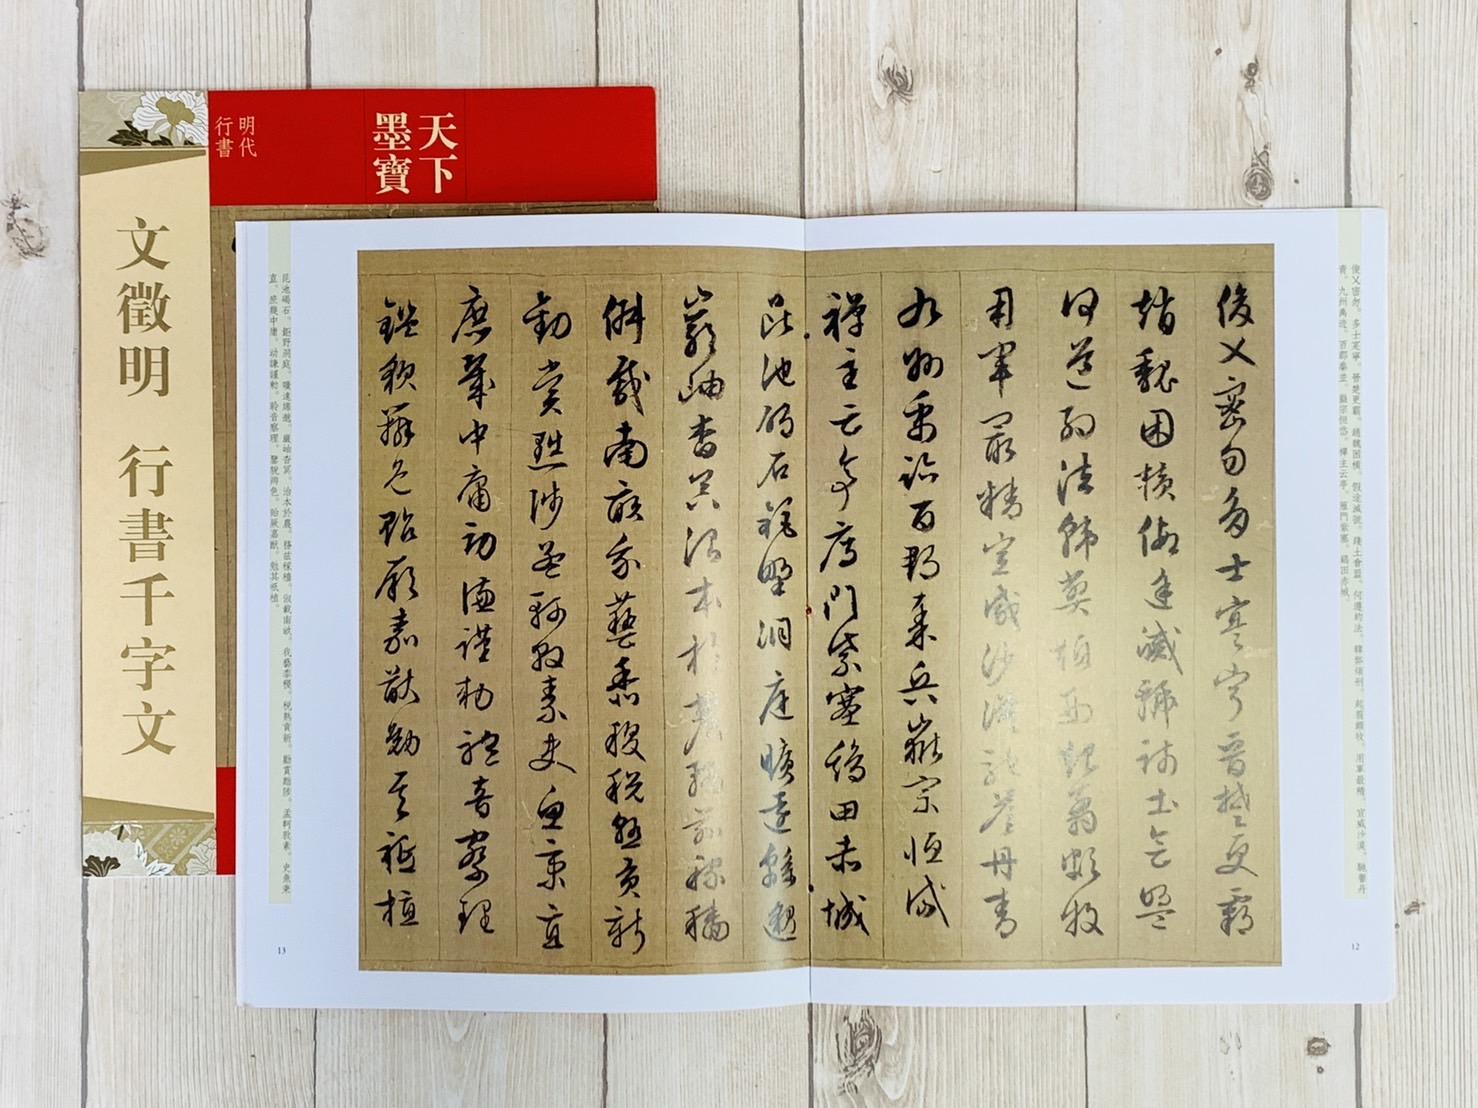 天下
墨寶
明代
行書
文徵明 行書千字文
俊乂密勿。多士寔寧。晉楚更霸。趙魏困橫。假途滅虢。踐土會盟。何遵約法。韓弊煩刑。起翦頗牧。用軍最精。宣威沙漠。馳譽丹
青。九州禹迹。百郡秦並。嶽宗恒岱。禪主云亭。雁門紫塞。鷄田赤城。
12
俊乂密勿多士寔寧晉楚更霸
趙魏困橫假途滅虢踐土會盟
何遵約法韓弊煩刑起翦頗牧
用軍最精宣威沙漠馳譽丹青
九州禹迹百郡秦并嶽宗恒岱
禪主云亭雁門紫塞鷄田赤城
昆池碣石鉅野洞庭曠遠緜邈
巖岫杳冥治本於農務茲稼穡
俶載南畝我藝黍稷稅熟貢新
勸賞黜陟孟軻敦素史魚秉直
庶幾中庸勞謙謹勑聆音察理
鑑貌辨色貽厥嘉猷勉其祗植
昆池碣石。鉅野洞庭。曠遠緜邈。巖岫杳冥。治本於農。務茲稼穡。俶載南畝。我藝黍稷。稅熟貢新。勸賞黜陟。孟軻敦素。史魚秉
直。庶幾中庸。勞謙謹勑。聆音察理。鑒貌辨色。貽厥嘉猷。勉其祗植。
13